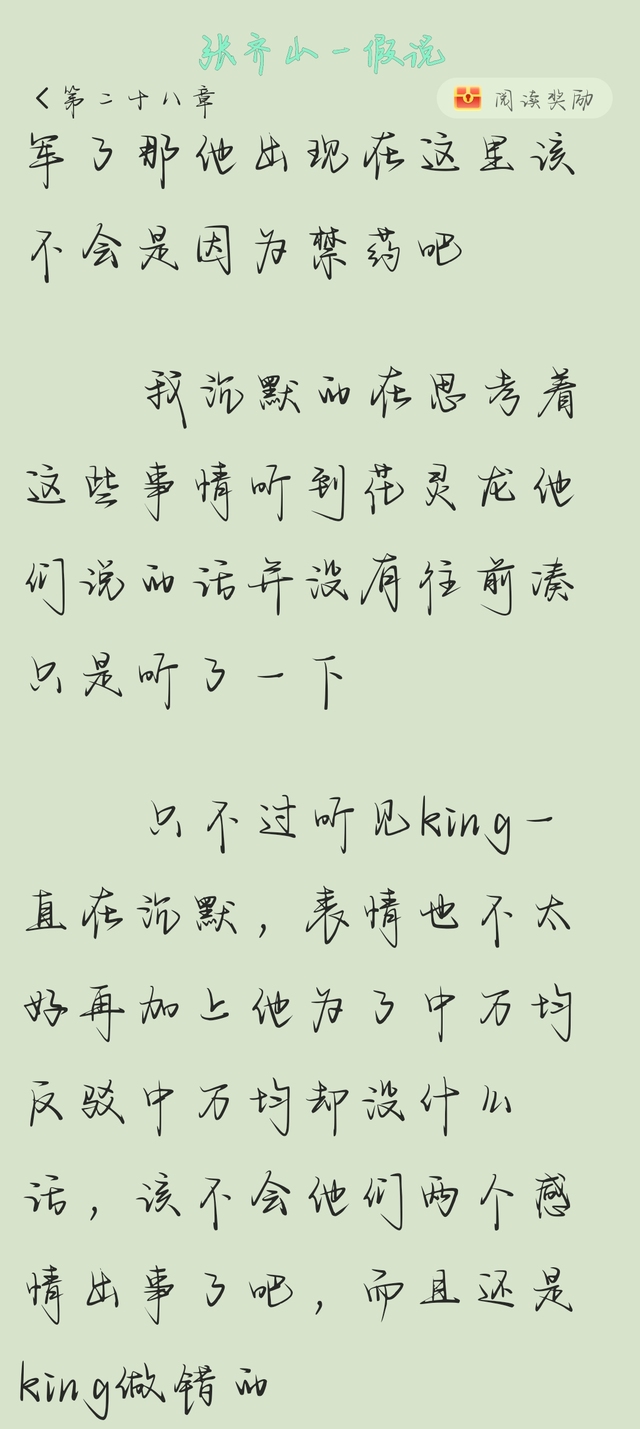 张齐山一假说
第二十八章
阅读奖励
军了那他出现在这里该
不会是因为禁药吧
我沉默的在思考着
这些事情听到花灵龙他
们说的话并没有往前凑
只是听了一下
只不过听见king一
直在沉默，表情也不太
好再加上他为了中万均
反驳中万均却没什么
话，该不会他们两个感
情出事了吧，而且还是
king做错的